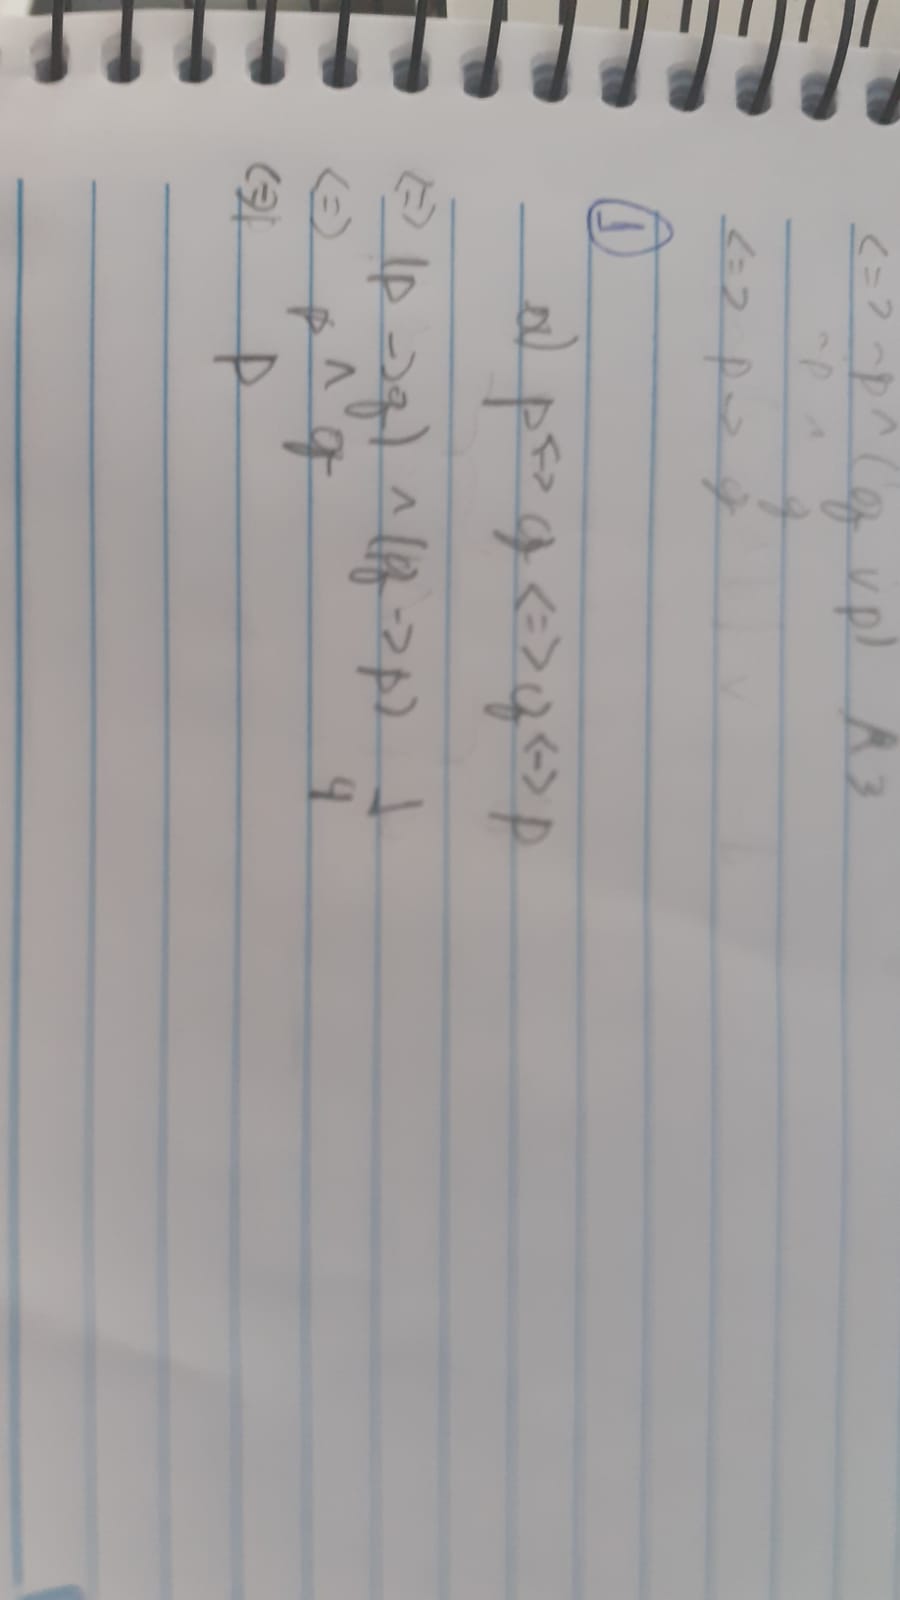 <=> ~p ∧ (q ∨ p) A3
~p ∧ q
<=> p -> q
1
a) p <-> q <=> q <-> p
<=> (p -> q) ∧ (q -> p) 1
<=> p ∧ q 4
<=> p